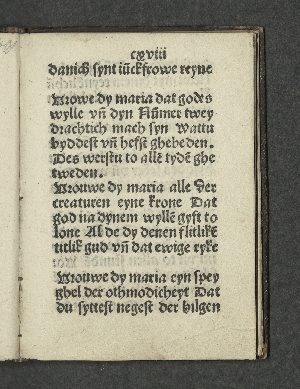 cxviii
danich synt iūckfrowe reyne
Vrowe dy maria dat godes
wylle vn̄ dyn Nūmer twey
drachtich mach syn Wattu
byddest vn̄ hefst ghebeden.
Des werstu to allē tydē ghe
tweden.
Vrouwe dy maria alle der
creaturen eyne krone Dat
god na dynem wyllē gyft to
lone Al de dy denen flitlikē
titlik gud vn̄ dat ewige ryke
Vrouwe dy maria eyn spey
ghel der othmodicheyt Dat
du syttest negest der hilgen